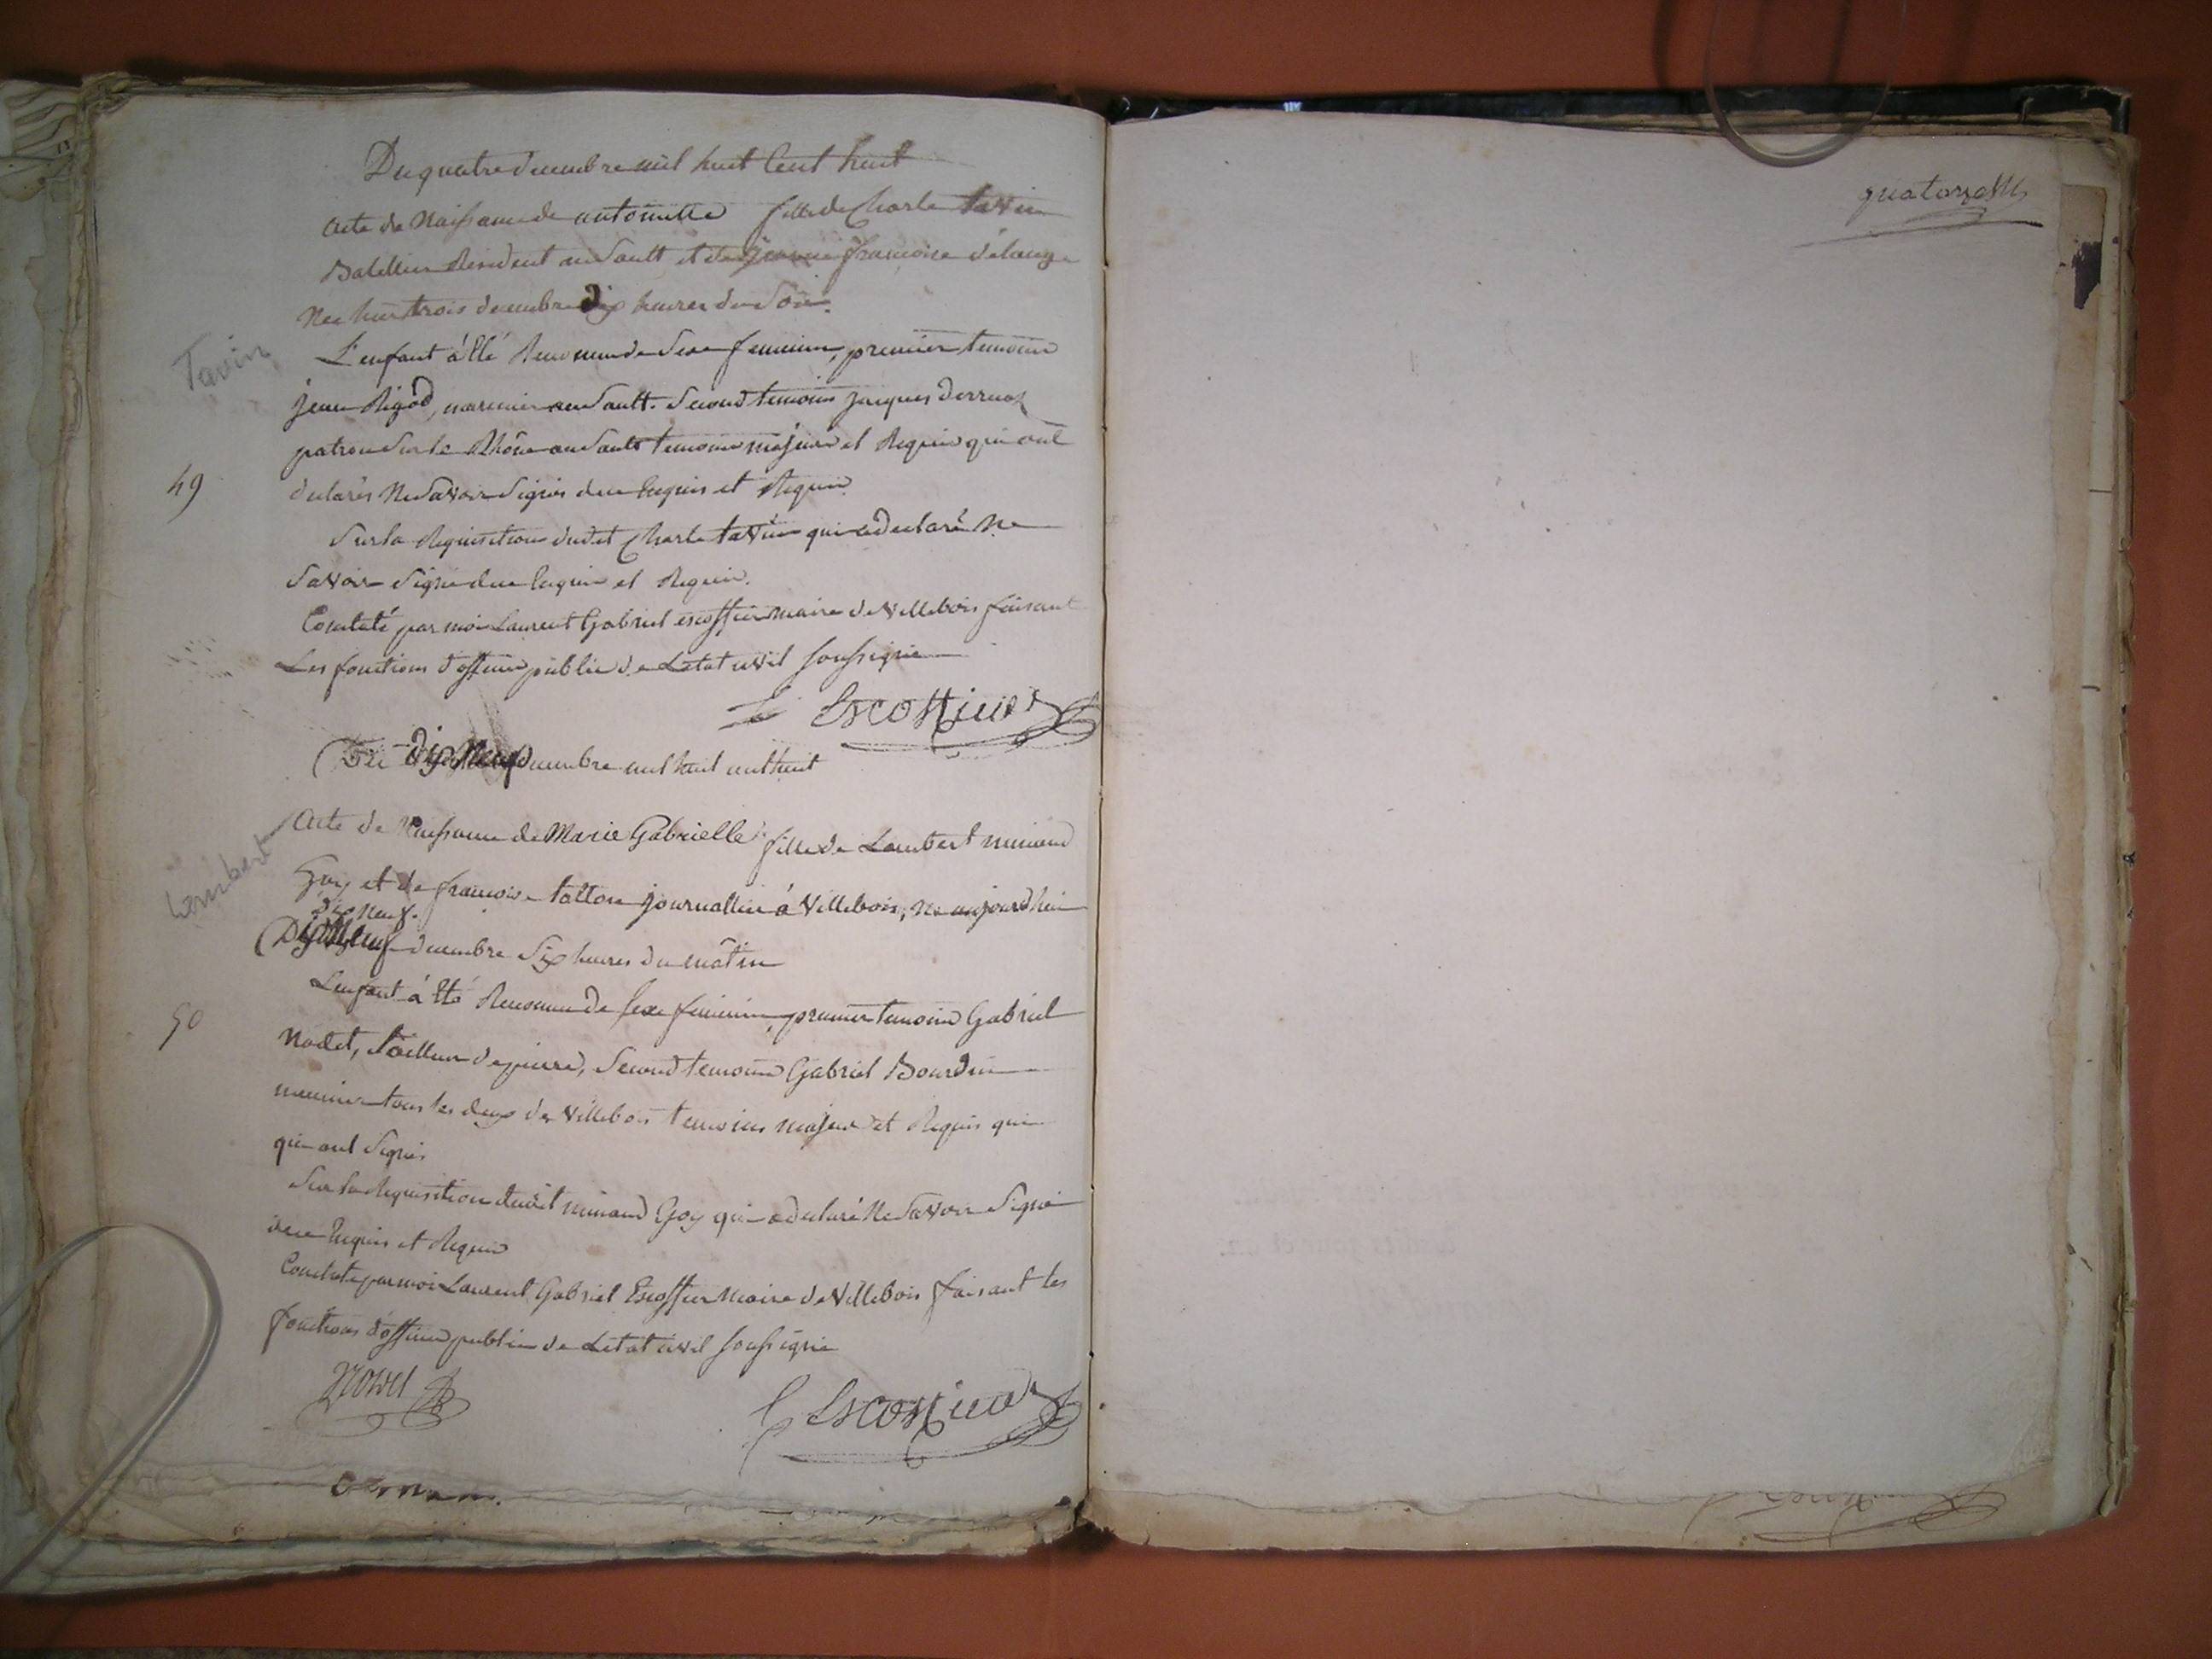 Du quatre decembre mil huit Cent huit
acte de Naissance de antoinette fille de Charle tavin
Batellier Resident au Sault et de jeanne françoise
Nee hier trois decembre dix heures du Soir.
Tavin
L'enfant à été Reconnu de Sexe feminin, premier temoin
jean Rigod, marinier au Sault. Second temoin jacques
patron Sur le Rhône au Sault temoins majeurs et Requis qui ont
49
declarés Ne Savoir Signer de ce Enquis et Requis.
Sur la Requisition dudit Charle tavin qui a declaré Ne
Savoir Signé de ce Enquis et Requis.
Constaté par moi Laurent Gabriel escoffier maire de Villebois faisant
Les fonctions d'officier public de Letat civil soussigné
Escoffier
Du dix Neuf decembre mil huit cent huit
Acte de Naissance de Marie Gabrielle fille de Lambert
Lambert
Goy et de françoise journallier à Villebois, Né aujourd'hui
dix Neuf.
Dix Neuf decembre Six heures du matin
L'enfant à été Reconnu de Sexe feminin, premier temoin Gabriel
50
Nodet, tailleur de pierre, Second temoin Gabriel Bourdin
meunier tous les deux de Villebois temoins majeur et Requis qui
qui ont Signés
Sur la Requisition dudit Goy qui a declaré Ne Savoir Signé
de ce Enquis et Requis
Constaté par moi Laurent Gabriel Escoffier Maire de Villebois faisant les
fonctions d'officier public de Letat civil soussigné
Escoffier
quatorze